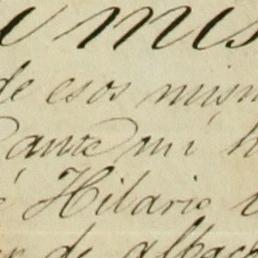 mis
de esos mism
ante mi h
Hilario
de albac